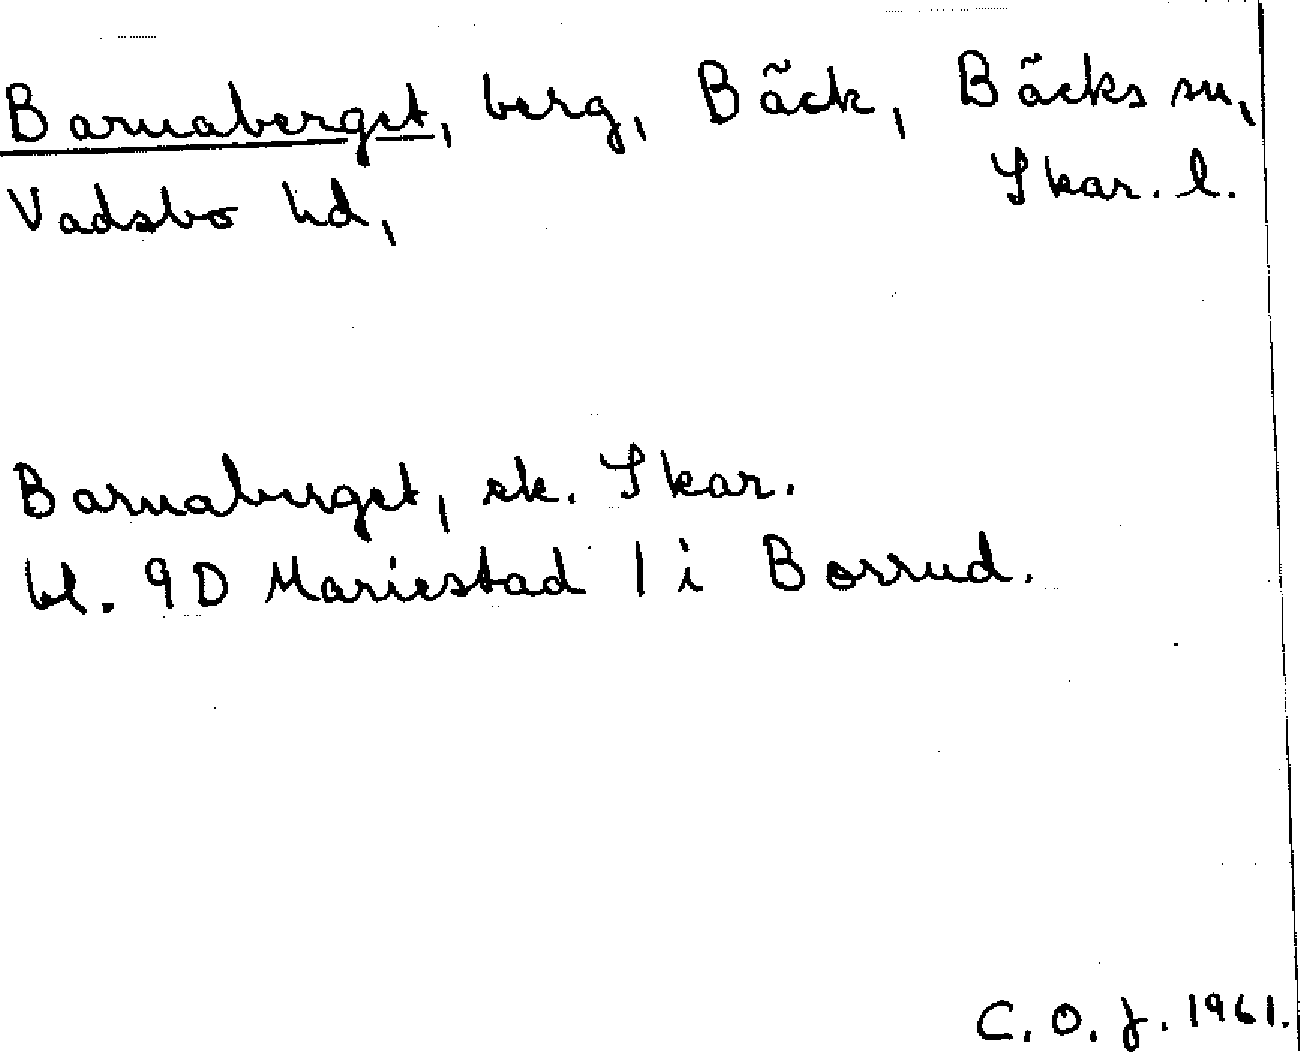 Barnaberget, berg, Bäck, Bäcks sn,
Vadsbo hd, Skar. l.
Barnaberget, ek. Skar.
bl. 9D Mariestad 1 i Borrud.
C. O. J. 1961.